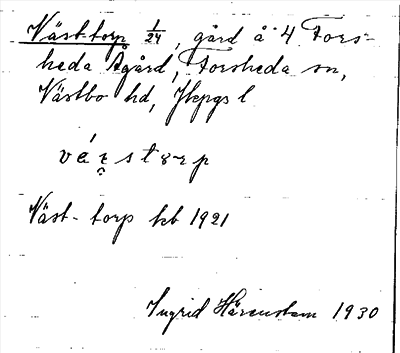 Väst-torp 1/24, gård å 4 Fors-
heda Ågård, Forsheda sn,
Västbo hd, Jkpgs l
Väst-torp kb 1921
Ingrid Härenstam 1930